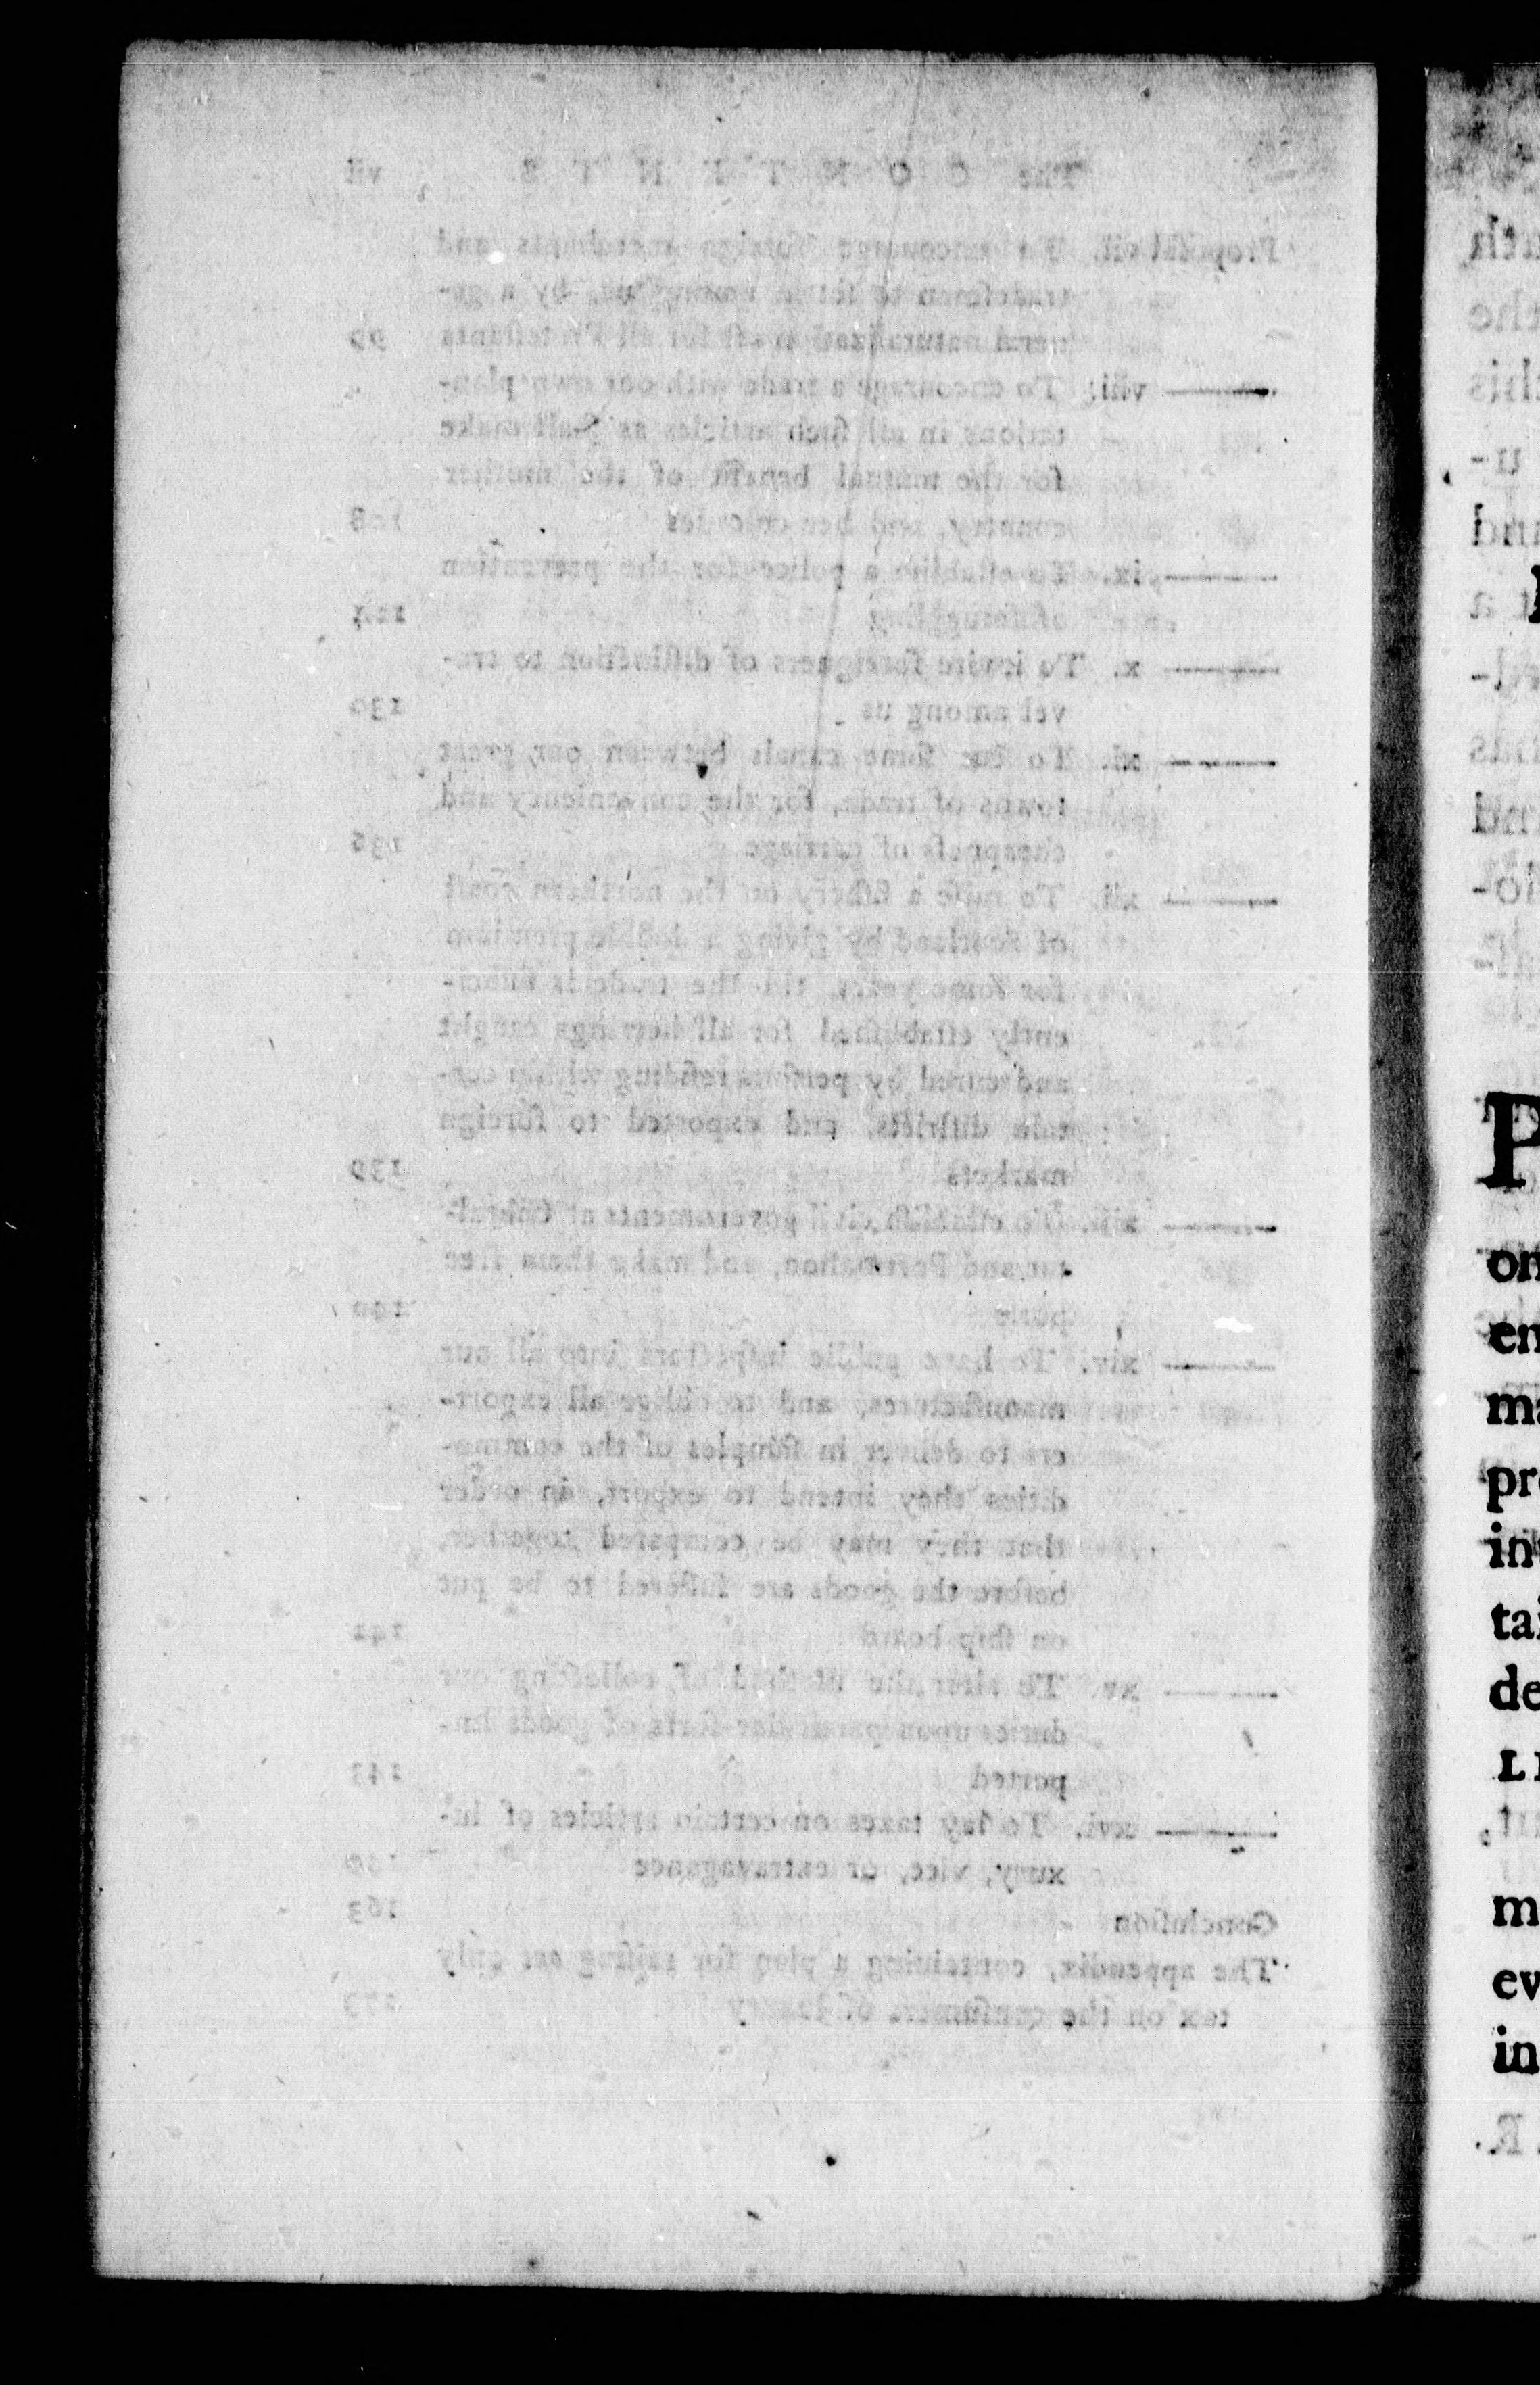 The CONTENTS vii
Proposal vii. To encourage foreign merchants and
tradesmen to settle among us, by a ge-
neral naturalization act for all Protestants 99
viii. To encourage a trade with our own plan-
tations in all such articles as shall make
for the mutual benefit of the mother
country, and her colonies 108
ix. To establish a police for the prevention
of smuggling
x. To invite foreigners of distinction to tra-
vel among us 130
xi. To cut some canals between our great
towns of trade, for the conveniency and
cheapness of carriage 136
xii. To raise a fishery on the northern coast
of Scotland by giving a double premium
for some years, till the trade is suffici-
ently established for all herrings caught
and cured by persons residing within cer-
tain districts, and exported to foreign
markets 139
xiii. To establish civil governments at Gibral-
tar and Portmahon, and make them free
ports
xiv. To have public inspectors into all our
manufactures, and to oblige all export-
ers to deliver in samples of the commo-
dities they intend to export, in order
that they may be compared together,
before the goods are suffered to be put
on ship board 142
xv. To alter the method of collecting our
duties upon particular sorts of goods im-
ported 147
xvi. To lay taxes on certain articles of lu-
xury, vice, or extravagance
Conclusion 163
The appendix, containing a plan for raising one only
tax on the consumers of luxury
P
on
en
ma
pr
in
tai
de
m
ev
in